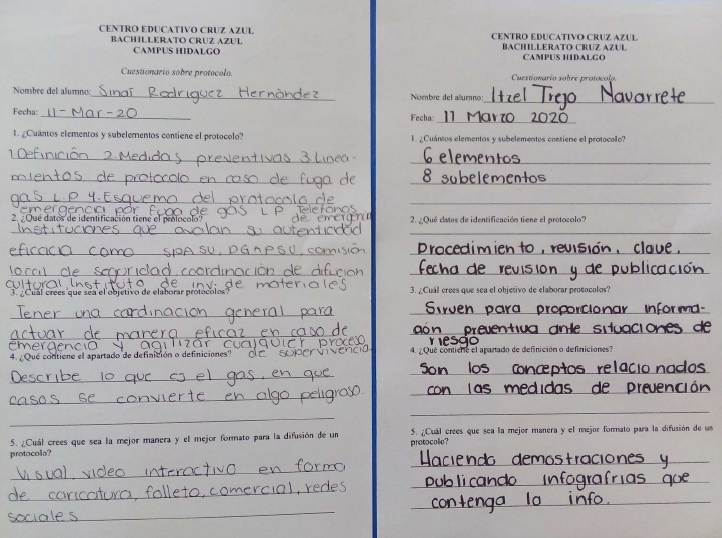 CENTRO EDUCATIVO CRUZ AZUL
BACHILLERATO CRUZ AZUL
CAMPUS HIDALGO
Cuestionario sobre protocolo.
Nombre del alumno: Sinaí Rodríguez Hernández
Fecha: 11-Mar-20
1. ¿Cuántos elementos y subelementos contiene el protocolo?
1.Definición 2.Medidas preventivas 3.Linea-
mientos de protocolo en caso de fuga de
gas L.P 4.Esquema del protocolo de
emergencia por fuga de gas L P Teléfonos
de emergen
2. ¿Qué datos de identificación tiene el protocolo?
Instituciones que avalan su autenticidad
eficacia como SPASU, DGAPSU, comisión
local de seguridad, coordinación de difucion
cultural, Instituto de inv. de materiales
3. ¿Cuál crees que sea el objetivo de elaborar protocolos?
Tener una cordinacion general para
actuar de manera eficaz en caso de
emergencia y agilizar cualquier proceso
de supervivencia
4. ¿Qué contiene el apartado de definición o definiciones?
Describe lo que es el gas, en que
casos se convierte en algo peligroso.
5. ¿Cuál crees que sea la mejor manera y el mejor formato para la difusión de un
protocolo?
Visual, video interactivo en forma
de caricatura, folleto, comercial, redes
sociales
CENTRO EDUCATIVO CRUZ AZUL
BACHILLERATO CRUZ AZUL
CAMPUS HIDALGO
Cuestionario sobre protocolo.
Nombre del alumno: Itzel Trejo Navarrete
Fecha: 11 Marzo 2020
1. ¿Cuántos elementos y subelementos contiene el protocolo?
6 elementos
8 subelementos
2. ¿Qué datos de identificación tiene el protocolo?
Procedimiento, revisión, clave,
fecha de revision y de publicación
3. ¿Cuál crees que sea el objetivo de elaborar protocolos?
Sirven para proporcionar informa-
ción preventiva ante situaciones de
riesgo
4. ¿Qué contiene el apartado de definición o definiciones?
Son los conceptos relacionados
con las medidas de prevención
5. ¿Cuál crees que sea la mejor manera y el mejor formato para la difusión de un
protocolo?
Haciendo demostraciones y
publicando infografrias que
contenga la info.